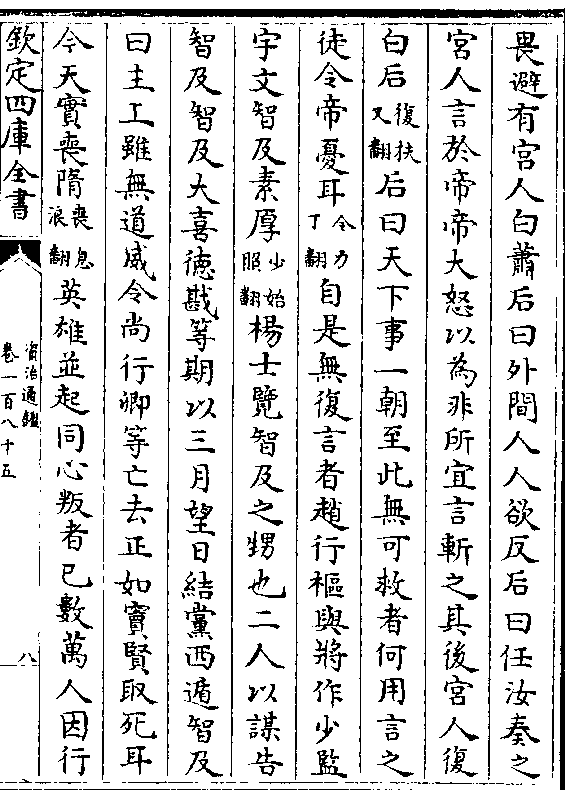 畏避有宫人白蕭后曰外間人人欲反后曰任汝奏之
宫人言於帝帝大怒以為非所宜言斬之其後宫人復
白后復扶又翻后曰天下事一朝至此無可救者何用言之
徒令帝憂耳令力丁翻自是無復言者趙行樞與將作少監
宇文智及素厚少始照翻楊士覽智及之甥也二人以謀告
智及智及大喜德戡等期以三月望日結黨西遁智及
曰主上雖無道威令尚行卿等亡去正如竇賢取死耳
今天實喪隋喪息浪翻英雄並起同心叛者已數萬人因行
欽定四庫全書
資治通鑑
卷一百八十五
八